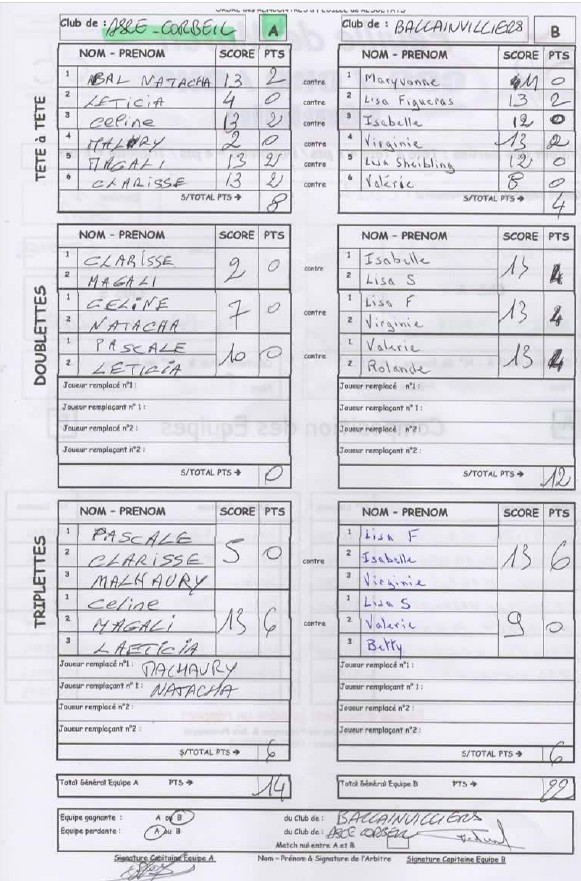 Club de : ASCE-CORBEIL A
Club de : BALLAINVILLIERS B
TETE à TETE
NOM - PRENOM SCORE PTS
1 BAL NATACHA 13 2
2 LETICIA 4 0
3 Celine 13 2
4 MALHAURY 2 0
5 MAGALI 13 2
6 CLARISSE 13 2
S/TOTAL PTS → 8
contre
contre
contre
contre
contre
contre
NOM - PRENOM SCORE PTS
1 Maryvonne 11 0
2 Lisa Figueras 13 2
3 Isabelle 12 0
4 Virginie 13 2
5 Lisa Sheibling 12 0
6 Valérie 8 0
S/TOTAL PTS → 4
DOUBLETTES
NOM - PRENOM SCORE PTS
1 CLARISSE
2 MAGALI
2 0
1 CELINE
2 NATACHA
7 0
1 PASCALE
2 LETICIA
10 0
Joueur remplacé n°1 :
Joueur remplaçant n° 1 :
Joueur remplacé n°2 :
Joueur remplaçant n°2 :
S/TOTAL PTS → 0
contre
contre
contre
NOM - PRENOM SCORE PTS
1 Isabelle
2 Lisa S
13 4
1 Lisa F
2 Virginie
13 4
1 Valerie
2 Rolande
13 4
Joueur remplacé n°1 :
Joueur remplaçant n° 1 :
Joueur remplacé n°2 :
Joueur remplaçant n°2 :
S/TOTAL PTS → 12
TRIPLETTES
NOM - PRENOM SCORE PTS
1 PASCALE
2 CLARISSE
3 MALHAURY
5 0
1 Celine
2 MAGALI
3 LAETICIA
13 6
Joueur remplacé n°1 : MALHAURY
Joueur remplaçant n° 1 : NATACHA
Joueur remplacé n°2 :
Joueur remplaçant n°2 :
S/TOTAL PTS → 6
contre
contre
NOM - PRENOM SCORE PTS
1 Lisa F
2 Isabelle
3 Virginie
13 6
1 Lisa S
2 Valerie
3 Betty
9 0
Joueur remplacé n°1 :
Joueur remplaçant n° 1 :
Joueur remplacé n°2 :
Joueur remplaçant n°2 :
S/TOTAL PTS → 6
Total Général Equipe A PTS → 14
Total Général Equipe B PTS → 22
Equipe gagnante : A ou B du Club de : BALLAINVILLIERS
Equipe perdante : A ou B du Club de : ASCE CORBEIL
Match nul entre A et B
Signature Capitaine Equipe A Nom - Prénom & Signature de l'Arbitre Signature Capitaine Equipe B